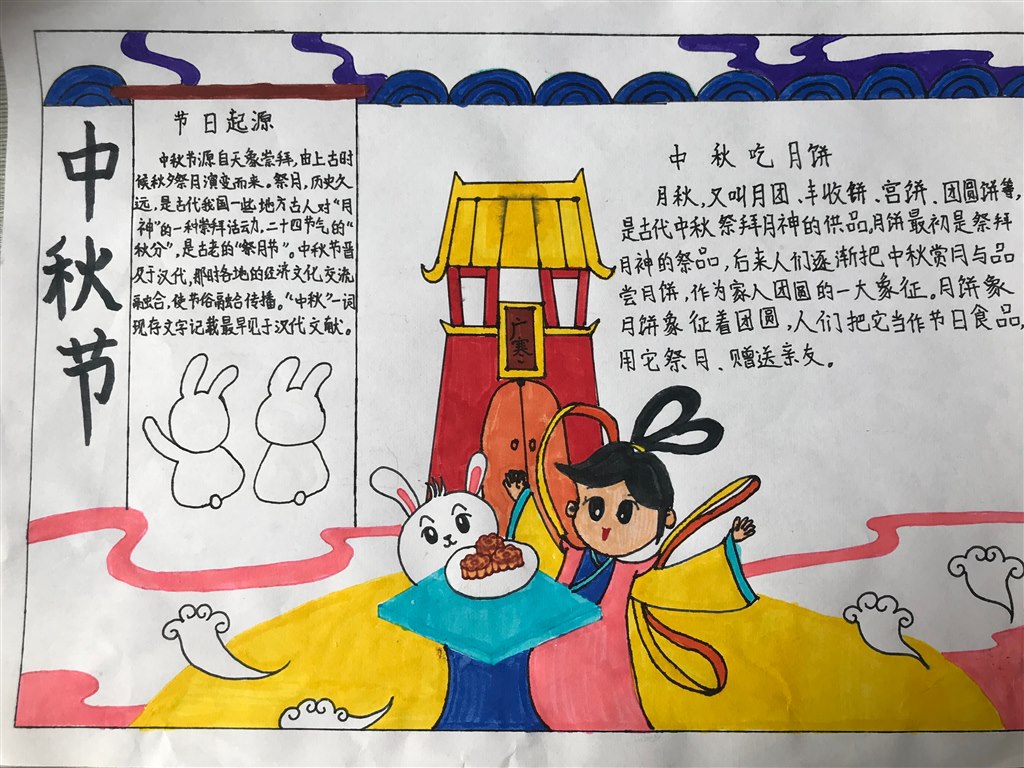 中秋节
节日起源
中秋节源自天象崇拜,由上古时
候秋夕祭月演变而来。祭月,历史久
远,是古代我国一些地方古人对“月
神”的一种崇拜活动,二十四节气的“
秋分”,是古老的“祭月节”。中秋节普
及于汉代,那时各地的经济文化交流
融合,使节俗融合传播。“中秋”一词
现存文字记载最早见于汉代文献。
广寒
中秋吃月饼
月秋,又叫月团、丰收饼、宫饼、团圆饼等,
是古代中秋祭拜月神的供品,月饼最初是祭拜
月神的祭品,后来人们逐渐把中秋赏月与品
尝月饼,作为家人团圆的一大象征。月饼象
月饼象征着团圆,人们把它当作节日食品,
用它祭月、赠送亲友。